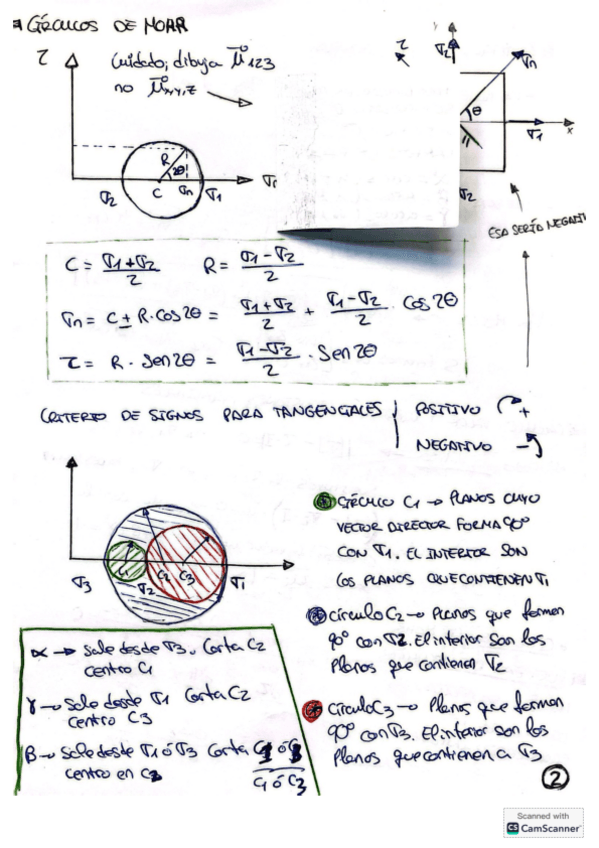 CÍRCULOS DE MOHR
τ
Cuidado, dibuja μ̄ 123
no μ̄ x,y,z
R
2θ
C
σn
σ2
σ1
τ
σ2
σn
θ
σ1
x
σ2
ESA SERÍA NEGATI
C = (σ1+σ2)/2 R = (σ1-σ2)/2
σn = C ± R·Cos2θ = (σ1+σ2)/2 + (σ1-σ2)/2 · Cos 2θ
τ = R · Sen2θ = (σ1-σ2)/2 · Sen2θ
CRITERIO DE SIGNOS PARA TANGENCIALES | POSITIVO +
NEGATIVO -
σ3
C1
σ2
C2
C3
σ1
CÍRCULO C1 → PLANOS CUYO
VECTOR DIRECTOR FORMA 90º
CON σ1. EL INTERIOR SON
LOS PLANOS QUE CONTIENEN σ1
círculo C2 → Planos que formen
90º con σ2. El interior son los
Planos que contienen σ2
círculo C3 → Planos que formen
90º con σ3. El interior son los
Planos que contienen a σ3
α → Sale desde σ3. Corta C2
centro C1
γ → Sale desde σ1 Corta C2
centro C3
β → Sale desde σ1 ó σ3 Corta
centro en
C1 ó C3
2
Scanned with
CS CamScanner